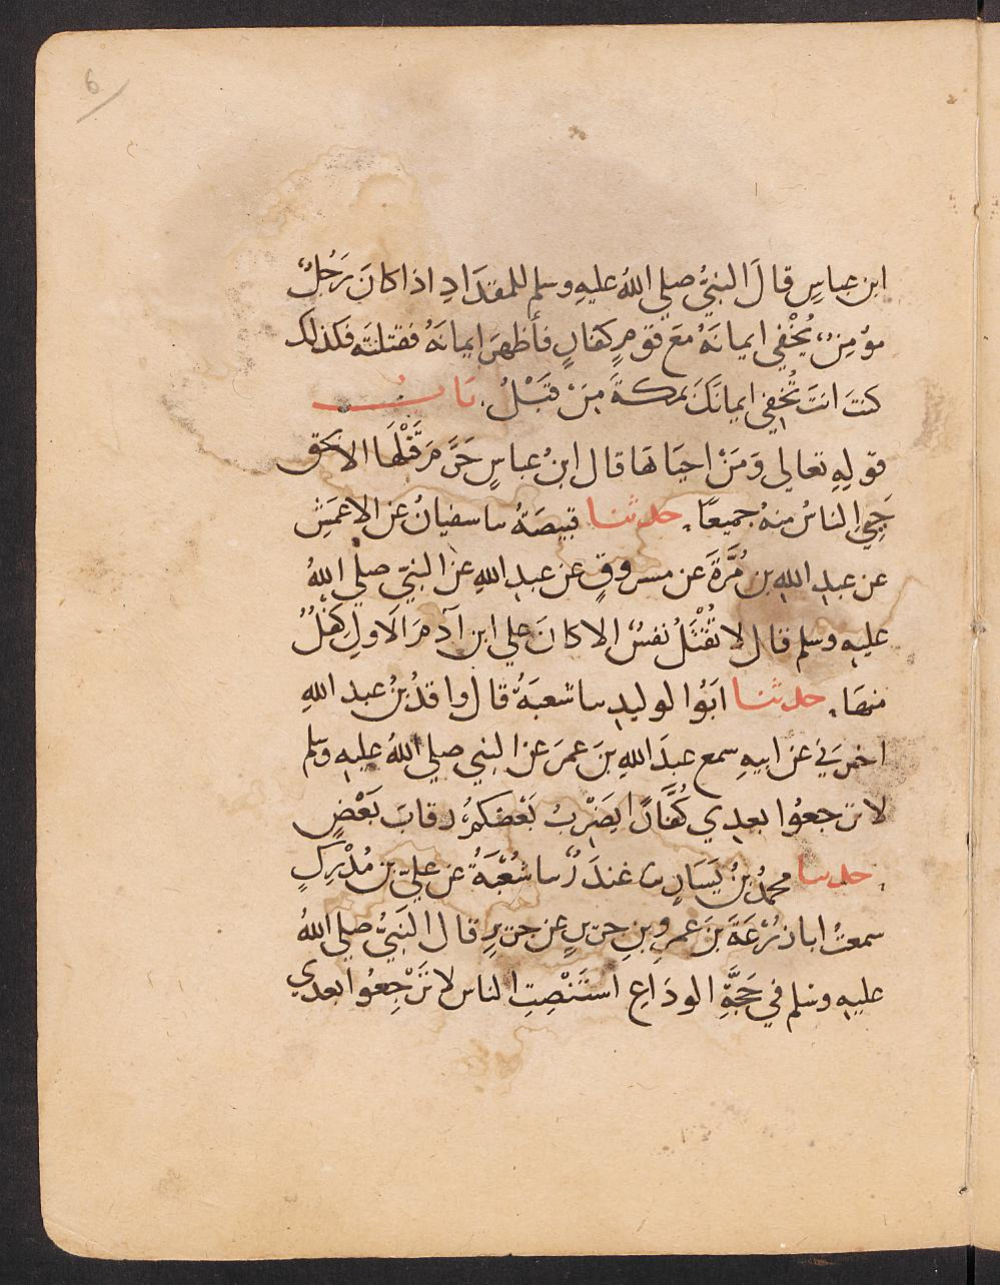 6
ابن عباسٍ قالَ النبيُّ صلي اللهُ عليهِ وسلم للمقدَادِ اذا كانَ رَجُلٌ
مؤمِنٌ يُخْفي ايمانَهُ مَعَ قومٍ كفارٍ فأظهرَ ايمانَهُ فقتلتَه فكذلك
كنتَ انتَ تُخفِي ايمانَكَ بمكةَ مِنْ قَبْلُ . بَابُ
قولِهِ تعالى وَمَنْ احيَاهَا قال ابنُ عباسٍ حَرَّمَ قَتْلَهَا الا بحق
حَيِيَ الناسُ منهُ جميعًا . حدثنا قبيصَةُ سا سفيانُ عن الاعمَشِ
عن عبدِ اللهِ بن مُرَّةَ عن مسروقٍ عن عبدِ اللهِ عن النبيّ صلي اللهُ
عليهِ وسلم قال لا تُقْتَلُ نفسٌ الا كانَ علي ابن آدمَ الاولِ كِفْلٌ
منهَا . حدثنا ابَوُا لوليدِ سا شعبَةُ قال واقدُ بنُ عبد اللهِ
اخبرَنِي عن ابيهِ سمع عبدَ اللهِ بنَ عمرَ عن النبي صلي اللهُ عليه وسلم
لا ترجعوُا بعدِي كُفَّارًا يَضرِبُ بَعْضُكمْ رقابَ بَعْضٍ
. حدسا محمدُ بنُ بَشارٍ سا غندَرٌ سا شُعْبَةُ عن عليّ بن مُدْرِكٍ
سمعتُ ابا زُرْعَةَ بنَ عمرِو بنِ جريرٍ عن جريرٍ قال النَبيُّ صلي اللهُ
عليهِ وسلم في حَجَّةِ الودَاعِ استَنْصِتِ الناس لا تَرْجِعُوا بعدي